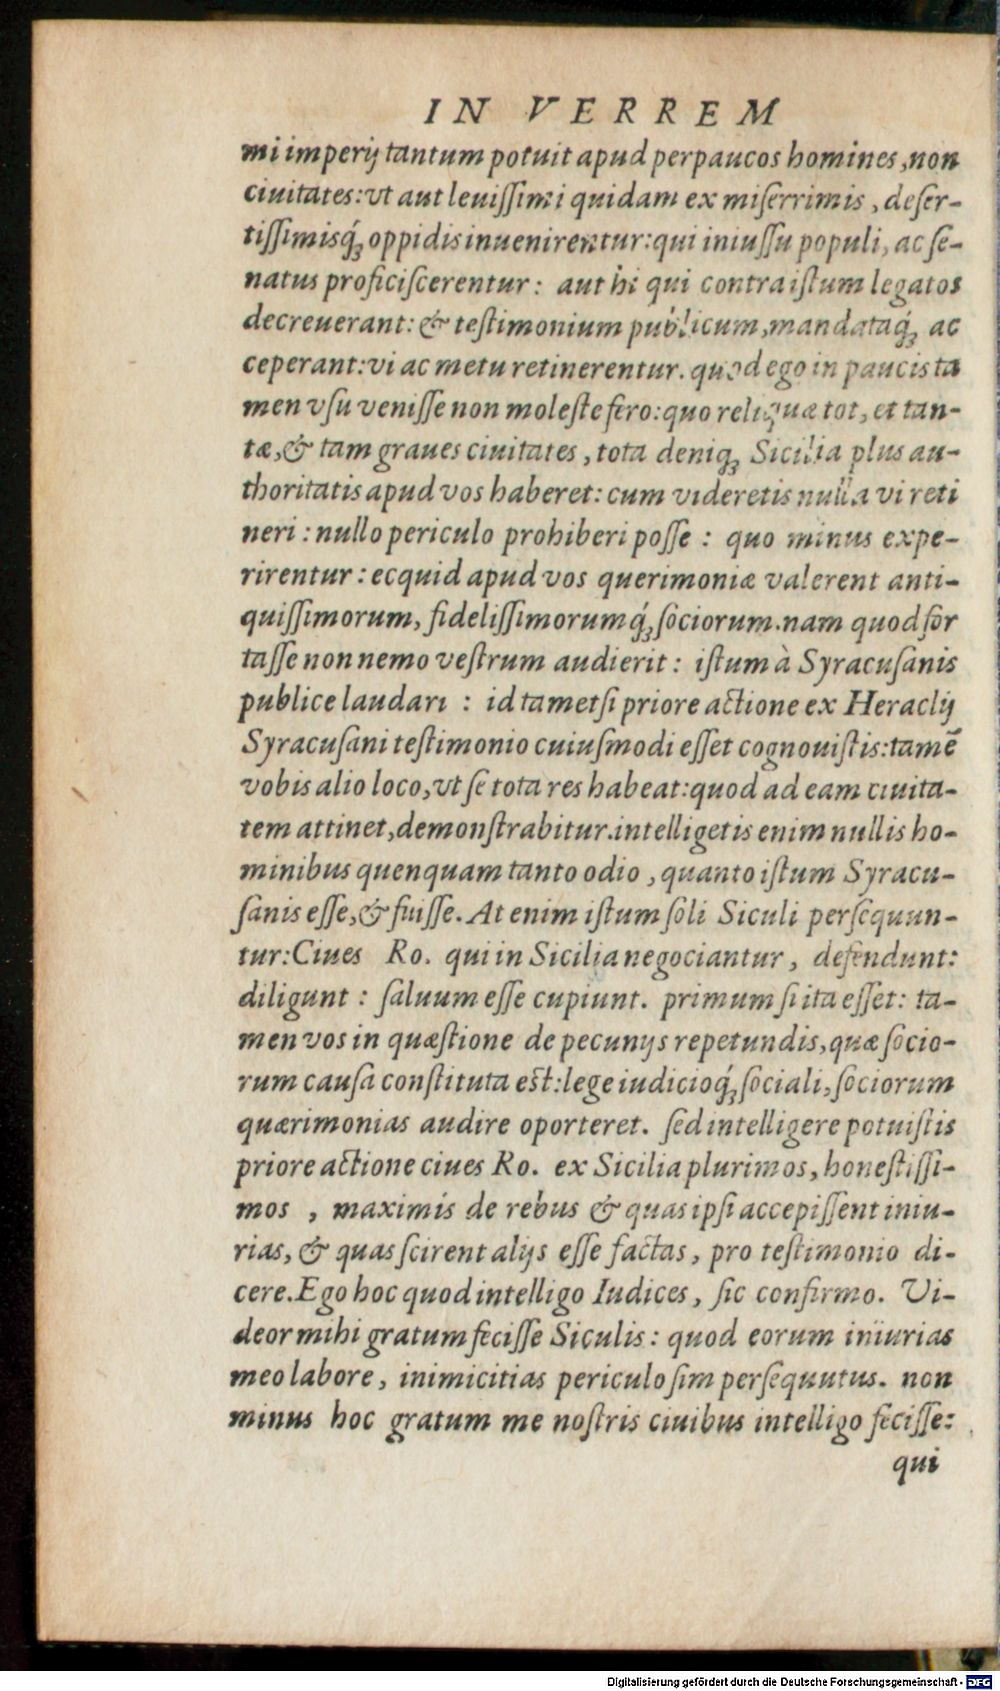 IN VERREM
mi imperĳ tantum potuit apud perpaucos homines, non
ciuitates: vt aut leuiſſimi quidam ex miſerrimis, deſer-
tiſſimisq́ꝫ oppidis inuenirentur: qui iniuſſu populi, ac ſe-
natus proficiſcerentur: aut hi qui contra iſtum legatos
decreuerant: & teſtimonium publicum, mandataq́ꝫ ac
ceperant: vi ac metu retinerentur. quod ego in paucis ta
men vſu veniſſe non moleſte fero: quo reliquæ tot, et tan-
tæ, & tam graues ciuitates, tota deniqꝫ Sicilia plus au-
thoritatis apud vos haberet: cum videretis nulla vi reti
neri: nullo periculo prohiberi poſſe: quo minus expe-
rirentur: ecquid apud vos querimoniæ valerent anti-
quiſſimorum, fideliſſimorumq́ꝫ ſociorum. nam quod for
taſſe non nemo veſtrum audierit: iſtum à Syracuſanis
publice laudari: id tametſi priore actione ex Heraclĳ
Syracuſani teſtimonio cuiuſmodi eſſet cognouiſtis: tamē
vobis alio loco, vt ſe tota res habeat: quod ad eam ciuita-
tem attinet, demonſtrabitur. intelligetis enim nullis ho-
minibus quenquam tanto odio, quanto iſtum Syracu-
ſanis eſſe, & fuiſſe. At enim iſtum ſoli Siculi perſequun-
tur: Ciues Ro. qui in Sicilia negociantur, defendunt:
diligunt: ſaluum eſſe cupiunt. primum ſi ita eſſet: ta-
men vos in quæſtione de pecunĳs repetundis, quæ ſocio-
rum cauſa conſtituta eſt: lege iudicioq́ꝫ ſociali, ſociorum
quærimonias audire oporteret. ſed intelligere potuiſtis
priore actione ciues Ro. ex Sicilia plurimos, honeſtiſſi-
mos, maximis de rebus & quas ipſi accepiſſent iniu-
rias, & quas ſcirent alĳs eſſe factas, pro teſtimonio di-
cere. Ego hoc quod intelligo Iudices, ſic confirmo. Vi-
deor mihi gratum feciſſe Siculis: quod eorum iniurias
meo labore, inimicitias periculo ſim perſequutus. non
minus hoc gratum me noſtris ciuibus intelligo feciſſe:
qui
Digitalisierung gefördert durch die Deutsche Forschungsgemeinschaft - DFG